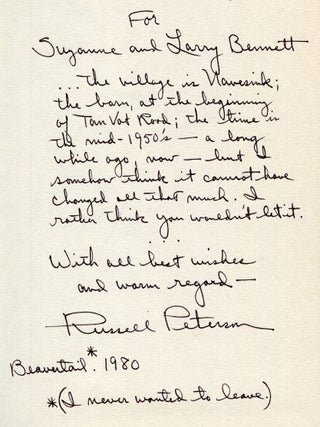 For
Suzanne and Larry Bennett
...the village is Navesink;
the barn, at the beginning
of Tan Vat Road; the time is
the mid-1950's — a long
while ago, now — but I
somehow think it cannot have
changed all that much. I
rather think you wouldn't let it.
...
With all best wishes
and warm regard —
Russell Peterson
Beavertail.* 1980
*(I never wanted to leave.)